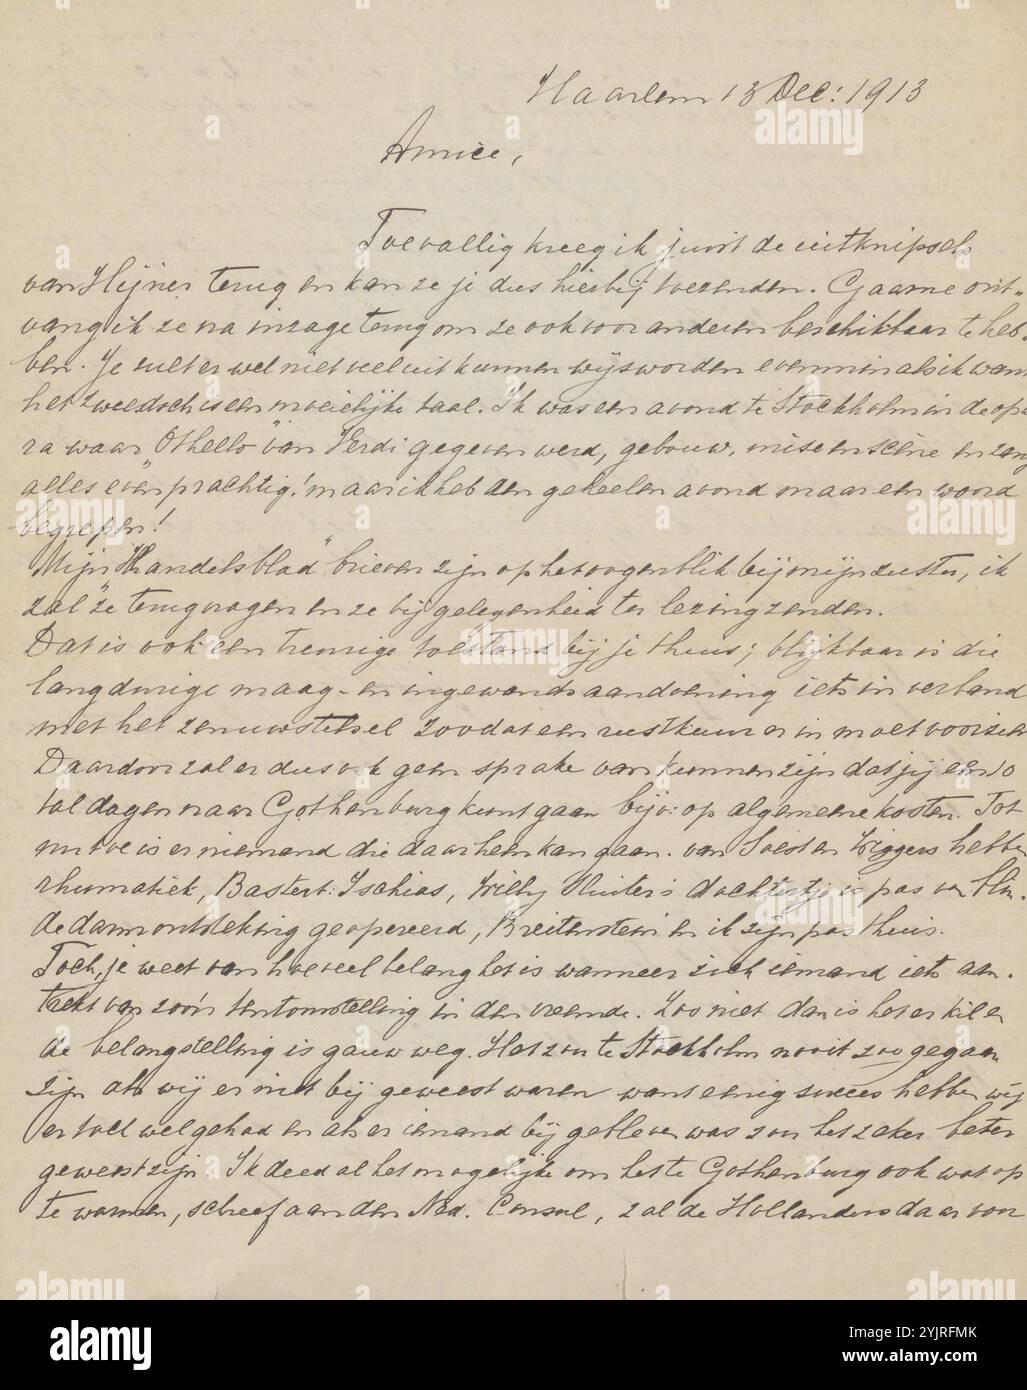 Haarlem 13 Dec: 1913
Amice,
Toevallig kreeg ik juist de uitknipsels
van Heijner terug en kan ze je dus hierbij toezenden. Gaarne ont-
vang ik ze na inzage terug om ze ook voor anderen beschikbaar te heb-
ben. Je zult er wel niet veel uit kunnen wijs worden evenmin als ik want
het zweedsch is een moeielijke taal. Ik was een avond te Stockholm in de ope
ra waar „Othello" van Verdi gegeven werd, gebouw, mise en scène en zang
alles even prachtig! maar ik heb den geheelen avond maar een woord
begrepen!
Mijn „Handelsblad" brieven zijn op het oogenblik bij mijn zuster, ik
zal ze terugvragen en ze bij gelegenheid ter lezing zenden.
Dat is ook een treurige toestand bij je thuis; blijkbaar is die
langdurige maag- en ingewandsaandoening iets in verband
met het zenuwstelsel zoodat een rustkuur er in moet voorzien
Daardoor zal er dus ook geen sprake van kunnen zijn dat jij een 10
tal dagen naar Gothenburg kunt gaan bijv: op algemeene kosten. Tot
nu toe is er niemand die daarheen kan gaan. van Soest en Wiggers hebben
rhumatiek, Bastert Ischias, Willy Sluiter's dochtertje is pas van blin-
dedarmontsteking geopereerd, Breitenstein en ik zijn pas thuis.
Toch, je weet van hoeveel belang het is wanneer zich iemand iets aan-
trekt van zoo'n tentoonstelling in den vreemde. Zoo niet dan is het er kil en
de belangstelling is gauw weg. Het zou te Stockholm nooit zoo gegaan
zijn als wij er niet bij geweest waren want eenig succes hebben wij
er toch wel gehad en als er iemand bij gebleven was zou het zeker beter
geweest zijn. Ik deed al het mogelijke om het te Gothenburg ook wat op
te warmen, schreef aan den Ned. Consul, zal de Hollanders daar voor
alamy
a
alamy
Image ID: 2YJRFMK
www.alamy.com